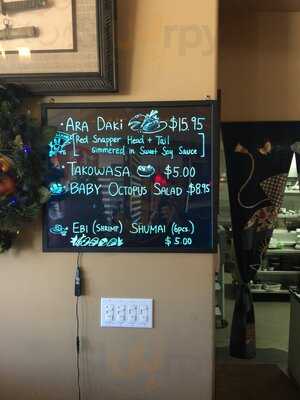 ARA DAKI $15.95
[Red Snapper Head + Tail
simmered in Sweet Soy Sauce]
TAKOWASA $5.00
BABY OCTOPUS SALAD $8.95
EBI (SHRIMP) SHUMAI (6pcs.)
$5.00